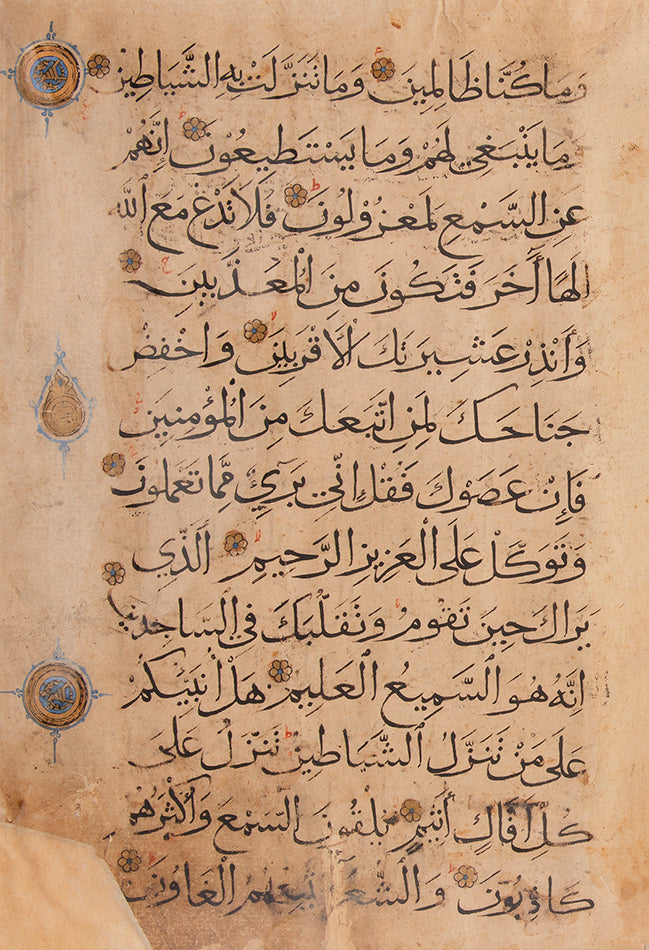 وَمَا كُنَّا ظَالِمِينَ وَمَا تَنَزَّلَتْ بِهِ الشَّيَاطِينُ
وَمَا يَنْبَغِي لَهُمْ وَمَا يَسْتَطِيعُونَ إِنَّهُمْ
عَنِ السَّمْعِ لَمَعْزُولُونَ فَلَا تَدْعُ مَعَ اللَّهِ
إِلَهًا آخَرَ فَتَكُونَ مِنَ الْمُعَذَّبِينَ
وَأَنْذِرْ عَشِيرَتَكَ الْأَقْرَبِينَ وَاخْفِضْ
جَنَاحَكَ لِمَنِ اتَّبَعَكَ مِنَ الْمُؤْمِنِينَ
فَإِنْ عَصَوْكَ فَقُلْ إِنِّي بَرِيءٌ مِمَّا تَعْمَلُونَ
وَتَوَكَّلْ عَلَى الْعَزِيزِ الرَّحِيمِ الَّذِي
يَرَاكَ حِينَ تَقُومُ وَتَقَلُّبَكَ فِي السَّاجِدِينَ
إِنَّهُ هُوَ السَّمِيعُ الْعَلِيمُ هَلْ أُنَبِّئُكُمْ
عَلَى مَنْ تَنَزَّلُ الشَّيَاطِينُ تَنَزَّلُ عَلَى
كُلِّ أَفَّاكٍ أَثِيمٍ يُلْقُونَ السَّمْعَ وَأَكْثَرُهُمْ
كَاذِبُونَ وَالشُّعَرَاءُ يَتَّبِعُهُمُ الْغَاوُونَ